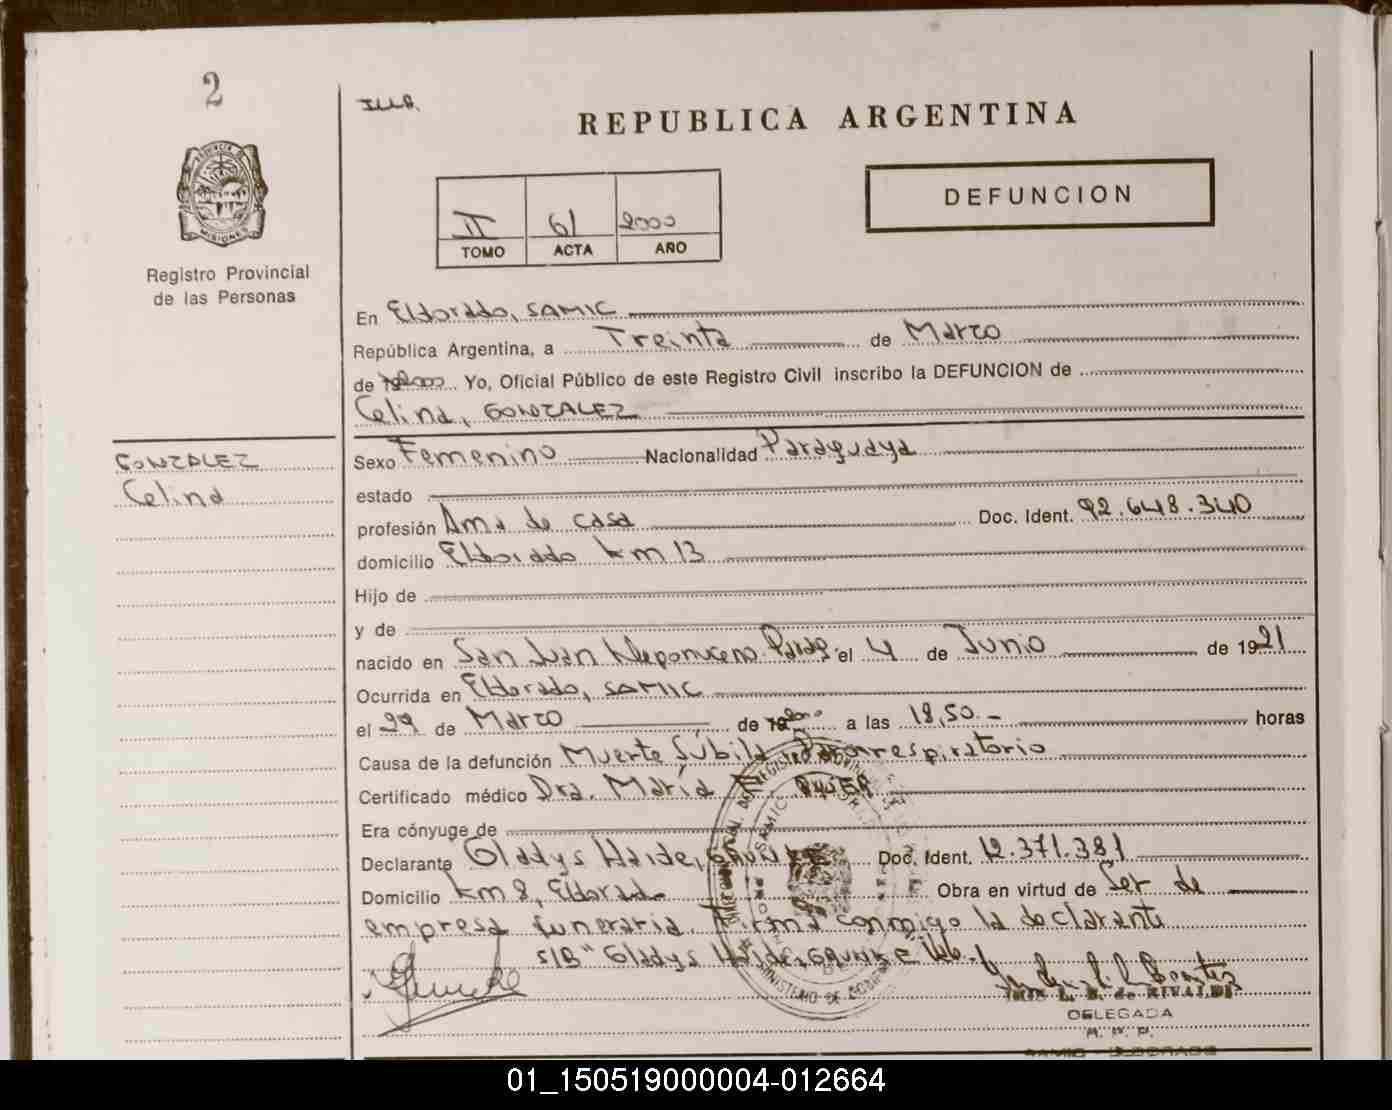 2
ILLA.
REPUBLICA ARGENTINA
PROVINCIA DE
MISIONES
Registro Provincial
de las Personas
II 61 2000
TOMO ACTA AÑO
DEFUNCION
En Eldorado, SAMIC
República Argentina, a Treinta de Marzo
de 2000 Yo, Oficial Público de este Registro Civil inscribo la DEFUNCION de
Celina, GONZALEZ
GONZALEZ
Celina
Sexo Femenino Nacionalidad Paraguaya
estado
profesión Ama de casa Doc. Ident. 92.648.340
domicilio Eldorado km 13
Hijo de
y de
nacido en San Juan Nepomuceno. Parag el 4 de Junio de 1921
Ocurrida en Eldorado, SAMIC
el 29 de Marzo de 2000 a las 18,50.- horas
Causa de la defunción Muerte Súbita Pararrespiratorio
Certificado médico Dra. María
Era cónyuge de
Declarante Gladys Haide, GRUNKE Doc. Ident. 12.371.381
Domicilio km 8, Eldorado Obra en virtud de Ser de
empresa funeraria. Firma conmigo la declarante
S/B "Gladys Haide, GRUNKE Vale.-
DELEGADA
R. P. P.
SAMIC - ELDORADO
01_150519000004-012664